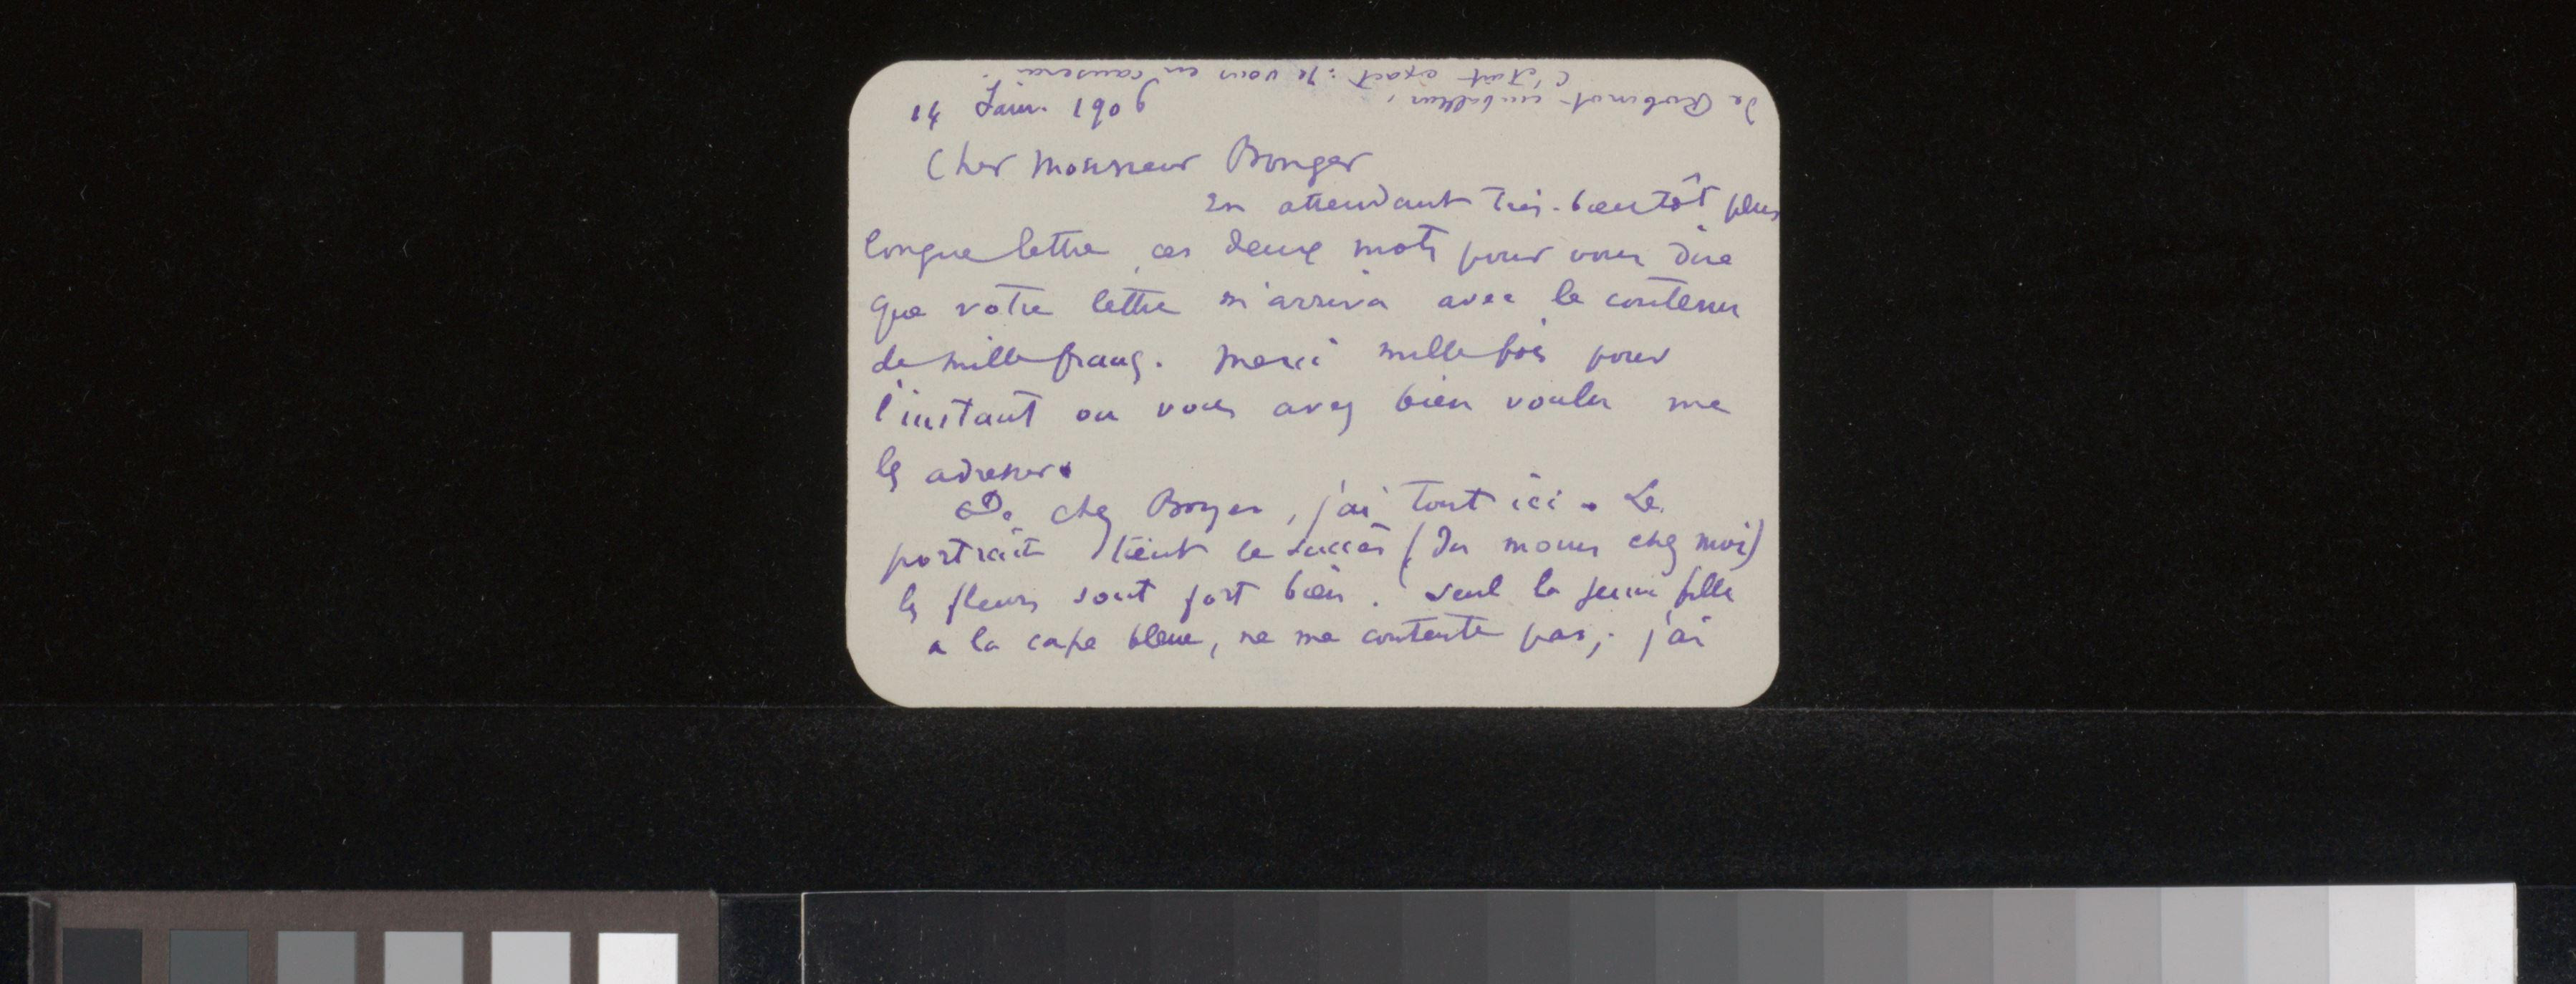 14 Janv. 1906
Cher Monsieur Bonger
En attendant très-bientôt plus
longue lettre, ces deux mots pour vous dire
que votre lettre m'arriva avec le contenu
de mille francs. Merci mille fois pour
l'instant ou vous avez bien voulu me
les adresser.
De chez Boyer, j'ai tout ici. Le
portrait tient le succès (du moins chez moi)
les fleurs sont fort bien. Seul la jeune fille
a la cape bleue, ne me contente pas; j'ai
de Robinot emballeur,
c'était exact: je vous en causerai.